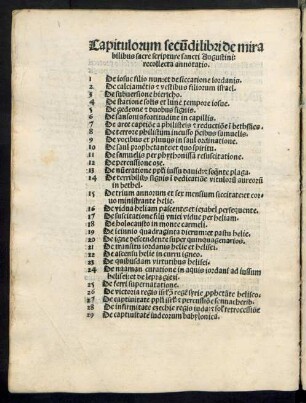 Capitulorum secūdi libri de mira
bilibus sacre scripture sancti Augustini:
recollecta annotatio.
1 De iosue filio nun: et de siccatione iordanis.
2 De calciamētis et vestibus filiorum israel.
3 De subuersione hiericho.
4 De statione solis et lune tempore iosue.
5 De gedeone et duobus signis.
6 De sansonis fortitudine in capillis.
7 De arce captiōe a philisteis et reductiōe ī bethsames
8 De terrore philistium incusso precibus samuelis.
9 De vocibus et pluuijs in saul ordinatione.
10 De saul prophetante: et quo spiritu.
11 De samuelis per phytonissā resuscitatione.
12 De percussione oze.
13 De nūeratione ppli iussu dauid et seqnte plaga.
14 De terribilibus signis ī dedicatiōe vitulorū aureorū
in bethel.
15 De trium annorum et sex mensium siccitate et cor
uo ministrante helie.
16 De vidua heliam pascente: et ieqabel persequente.
17 De suscitatione filij vnici vidue per heliam.
18 De holocausto in monte carmeli.
19 De ieiunio quadraginta dierum et pastu helie.
20 De igne descendente super quinquagenarios.
21 De transitu iordanis helie et helisei.
22 De ascensu helie in curru igneo.
23 De quibusdam virtutibus helisei.
24 De naaman curatione in aquis iordani ad iussum
helisei: et de lepra giezi.
25 De ferri supernatatione.
26 De victoria regis isrl' regē syrie pphetāte heliseo.
27 De captiuitate ppli isrl' et percussiōe sennacherib
28 De infirmitate ezechie regis iuda et sol' retrocessiōe
29 De captiuitate iudeorum babylonica.